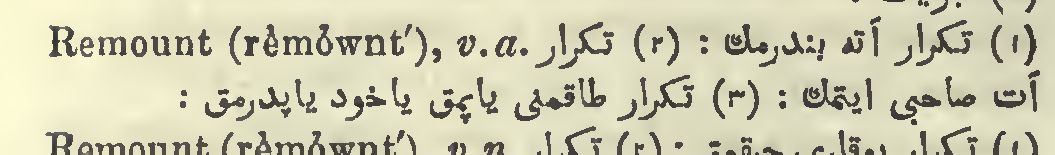 Remount (rĕmŏwnt′), v.a. (١) تكرار آته بندرمك : (٢) تكرار
آت صاحبی ایتمك : (٣) تكرار طاقمنی یاپمق یاخود یاپدرمق :
Remount (rĕmŏwnt′), v.n. (١) تكرار یوقاری چیقمق : (٢) تكرار